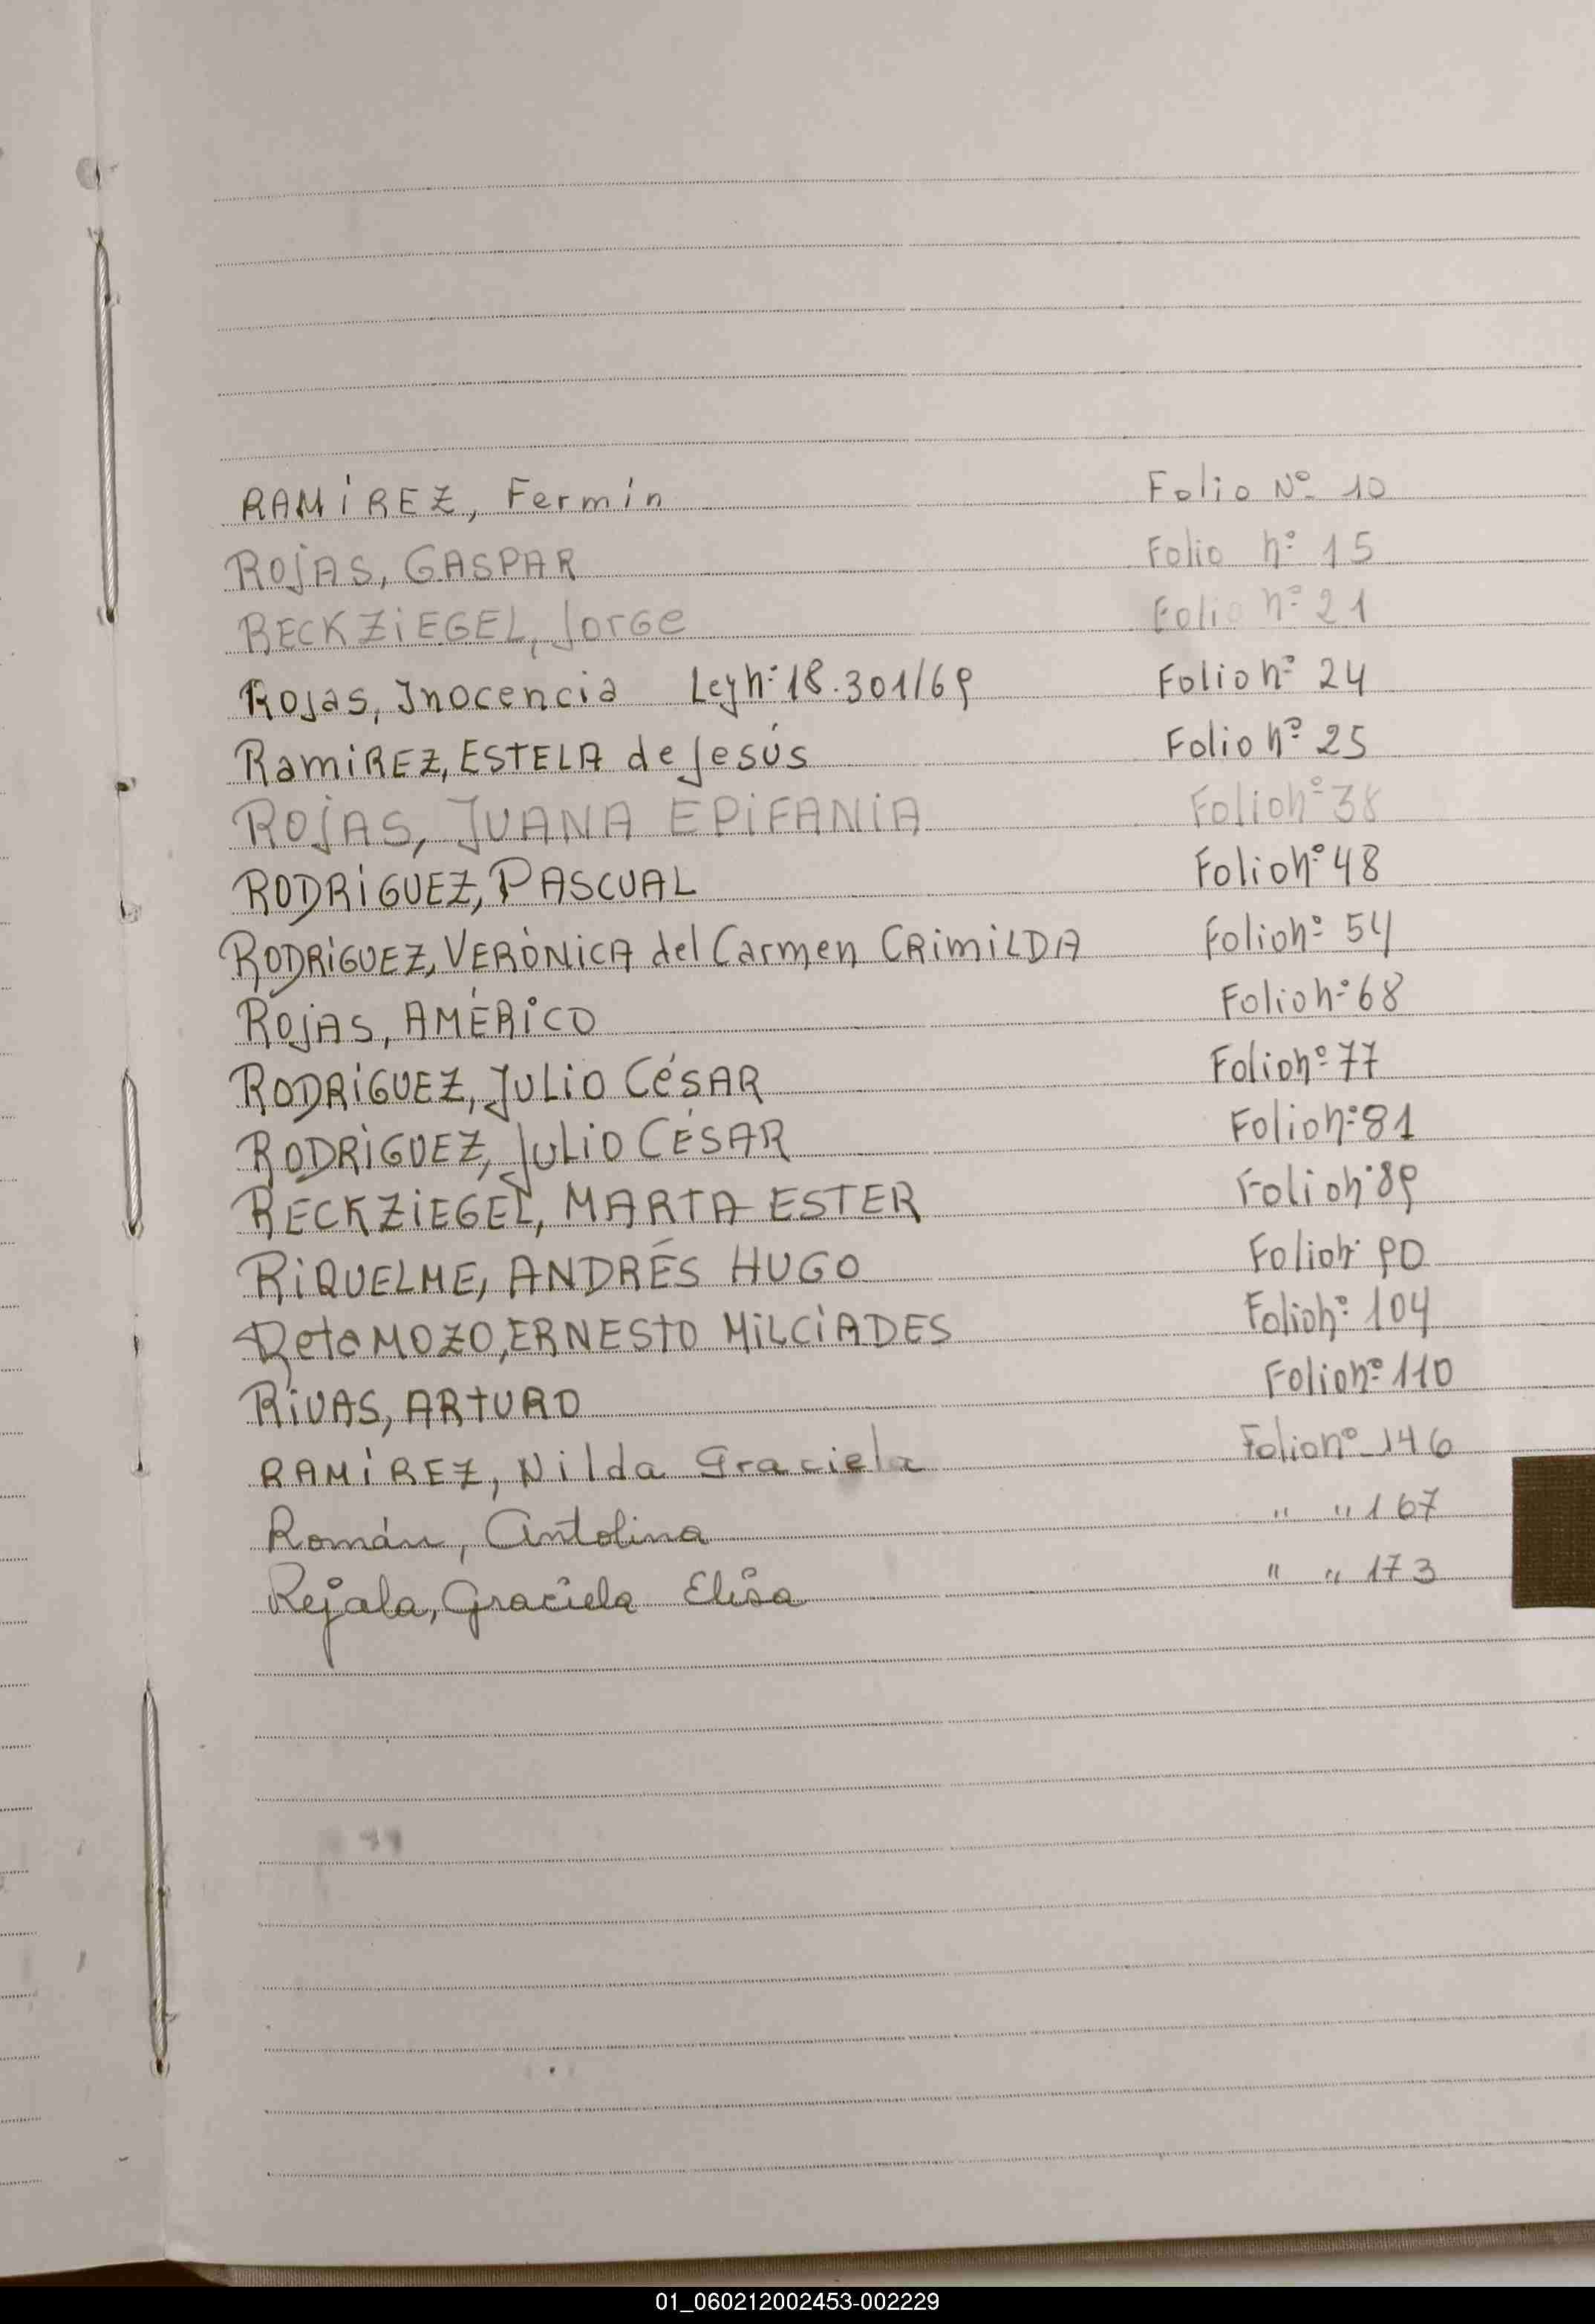 RAMÍREZ, Fermín Folio Nº 10
ROJAS, GASPAR Folio nº 15
RECKZIEGEL, Jorge Folio nº 21
Rojas, Inocencia Ley nº 18.301/69 Folio nº 24
RamiREZ, ESTELA de Jesús Folio nº 25
ROJAS, JUANA EPIFANIA Folio nº 38
RODRIGUEZ, PASCUAL Folio nº 48
RODRIGUEZ, VERÓNICA del Carmen CRIMILDA Folio nº 54
ROJAS, AMÉRICO Folio nº 68
RODRIGUEZ, JULIO CÉSAR Folio nº 77
RODRIGUEZ, JULIO CÉSAR Folio nº 81
RECKZIEGEL, MARTA ESTER Folio nº 89
RIQUELME, ANDRÉS HUGO Folio nº 90
RetaMOZO, ERNESTO MILCIADES Folio nº 104
RIVAS, ARTURO Folio nº 110
RAMÍREZ, Nilda Graciela Folio nº 146
Román, Antolina " " 167
Rejala, Graciela Elisa " " 173
01_060212002453-002229